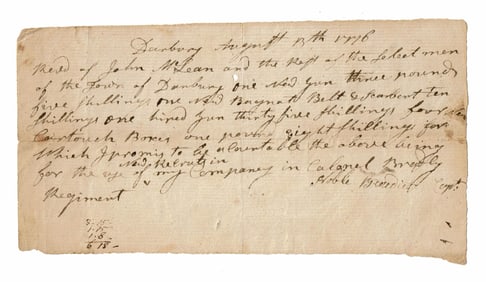 Danbury August 13th 1776
Recd of John McLean and the Rest of the Select men
of the Town of Danbury one Gun three pound
five Shillings one Bagnet Belt & Scarbert Ten
Shillings one hired Gun thirty five Shillings four
Cartouch Boxes one pound eight Shillings for
Which I promis to be acountable the above being
for the use of my Company in Colonel
Recruits in
Noble Benedict Capt
Regiment
1.15
1.8
6.18